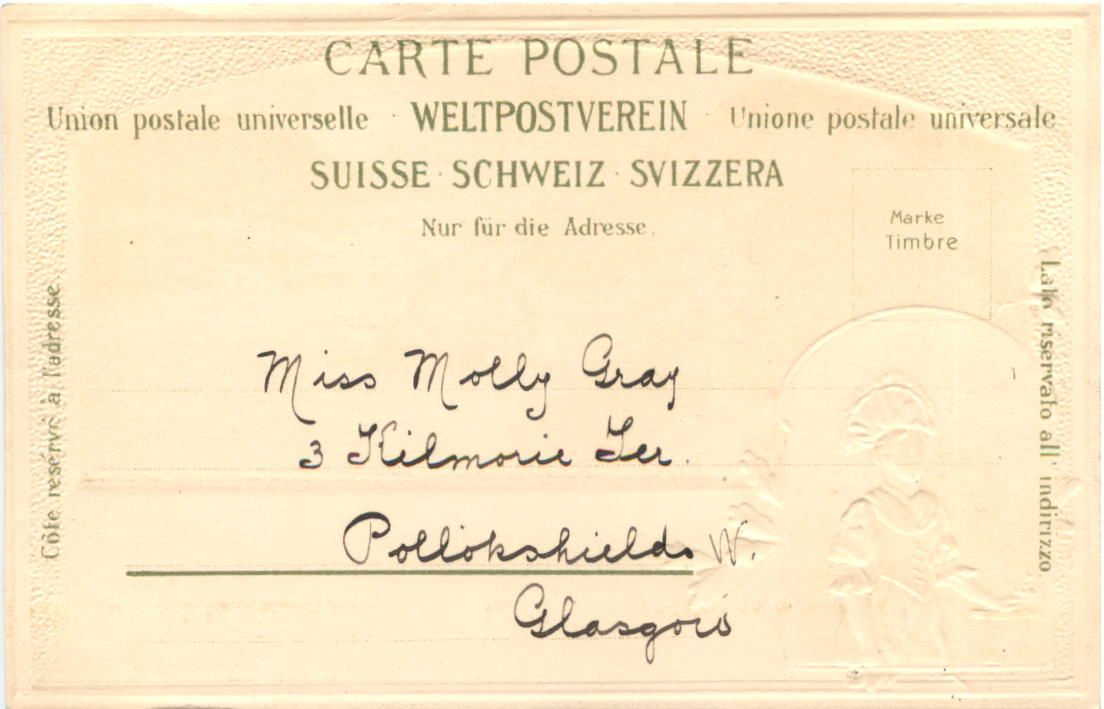 CARTE POSTALE
Union postale universelle · WELTPOSTVEREIN · Unione postale universale
SUISSE · SCHWEIZ · SVIZZERA
Nur für die Adresse.
Marke
Timbre
Côte reservé à l'adresse.
Lato riservato all' indirizzo.
Miss Molly Gray
3 Kilmorie Ter.
Pollokshields W.
Glasgow